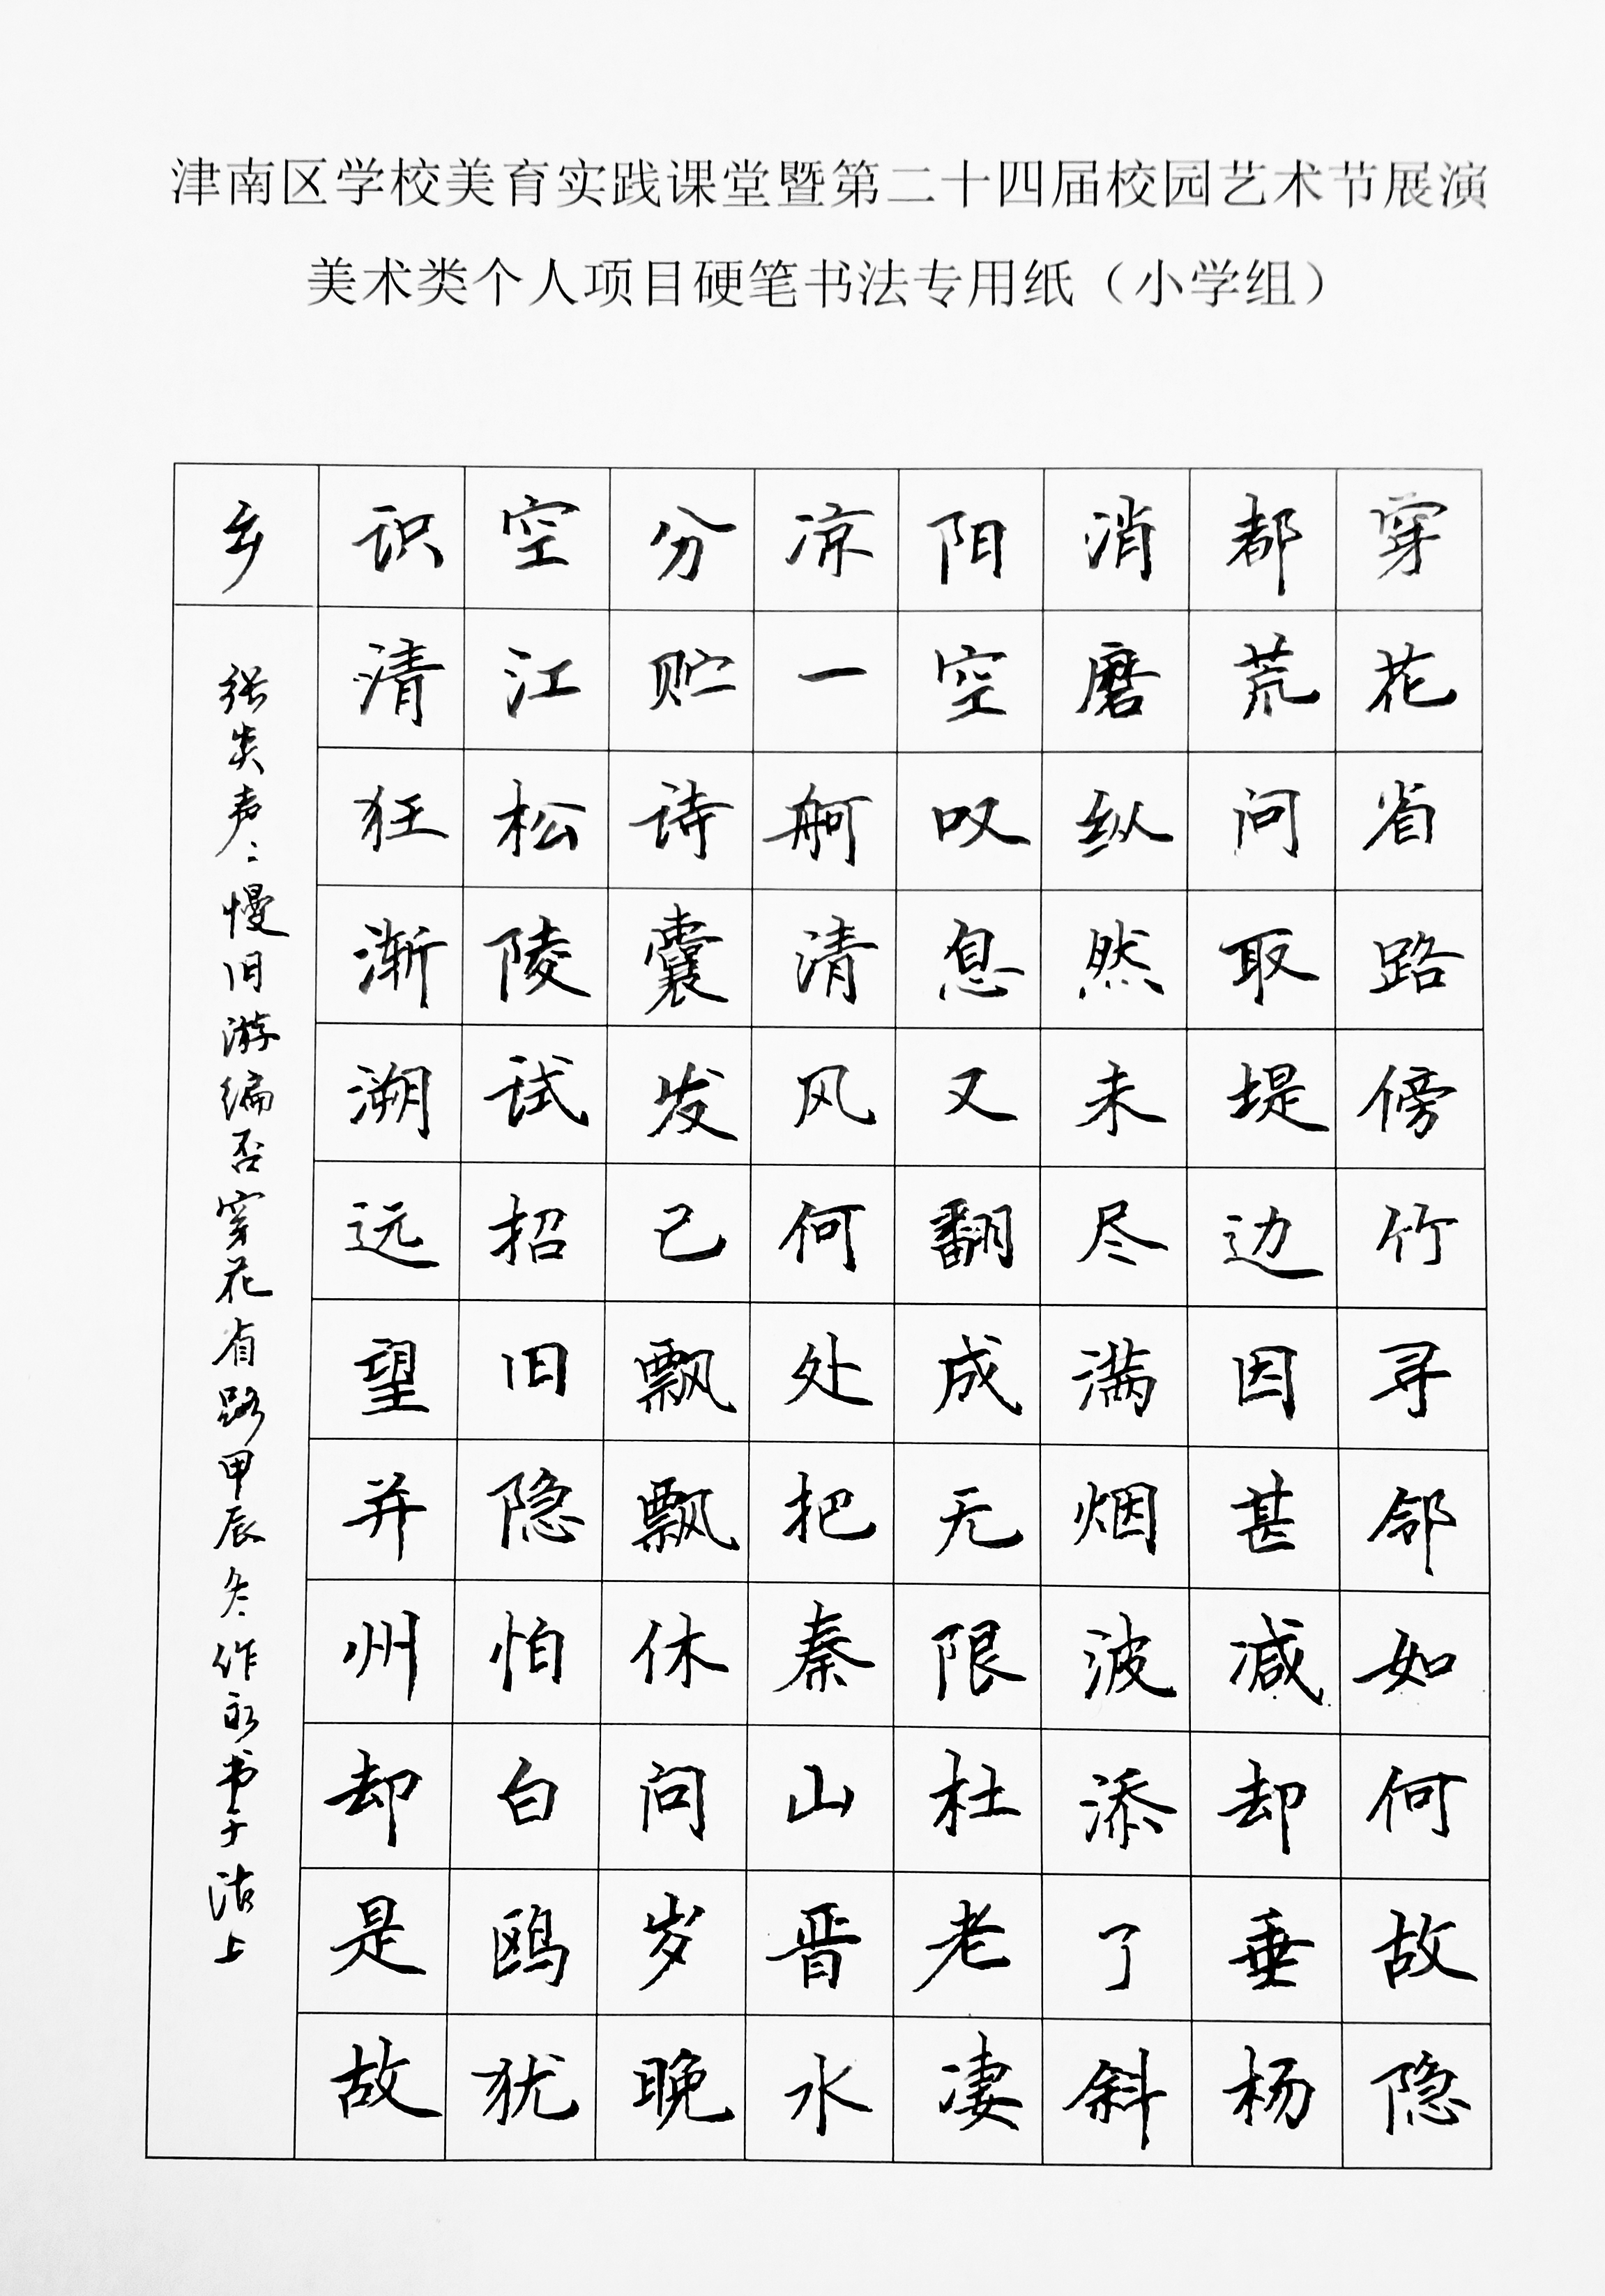 津南区学校美育实践课堂暨第二十四届校园艺术节展演
美术类个人项目硬笔书法专用纸（小学组）
穿花省路傍竹寻邻如何故隐
都荒问取堤边因甚减却垂杨
消磨纵然未尽满烟波添了斜
阳空叹息又翻成无限杜老凄
凉一舸清风何处把秦山晋水
分贮诗囊发已飘飘休问岁晚
空江松陵试招旧隐怕白鸥犹
识清狂渐溯远望并州却是故
乡
张炎声声慢旧游编否穿花省路甲辰冬作永书于沽上